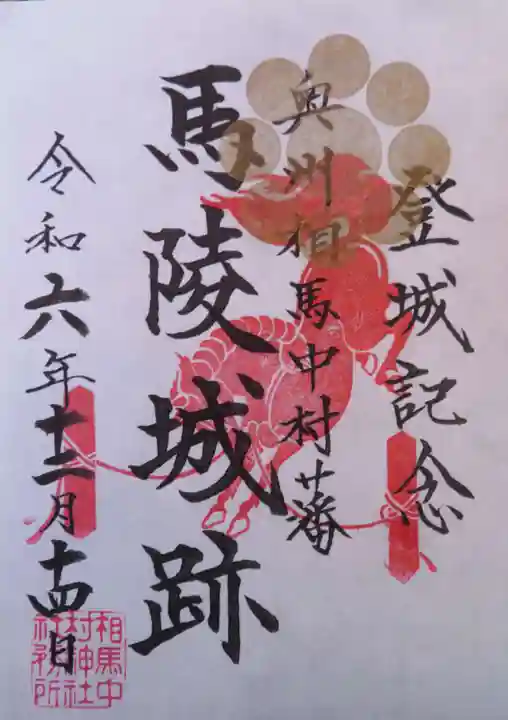 登城記念
奥州相馬中村藩
馬陵城跡
令和六年十二月十四日
相馬中
村神社
社務所